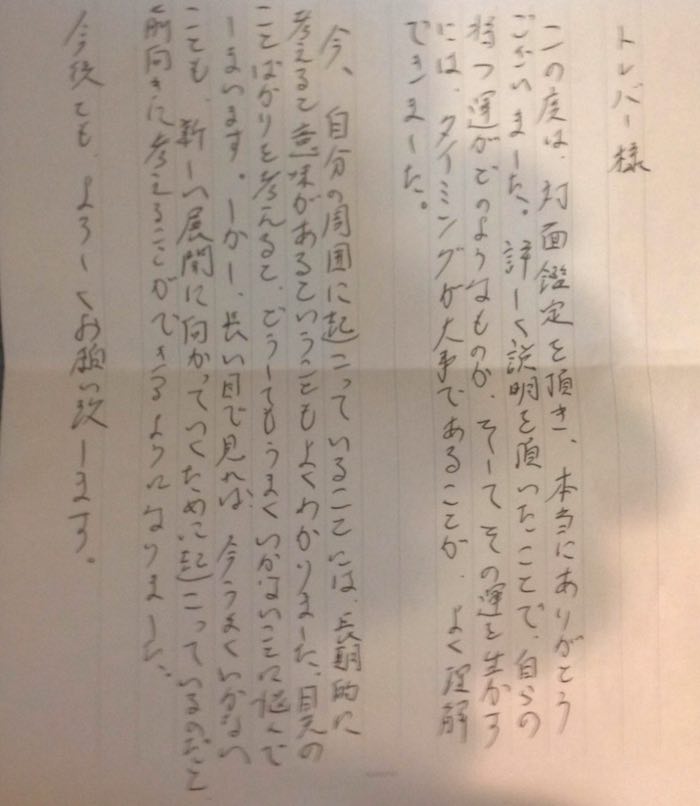 トレバー様
この度は、対面鑑定を頂き、本当にありがとう
ございました。詳しく説明を頂いたことで、自らの
持つ運がどのようなものか、そしてその運を生かす
には、タイミングが大事であることが、よく理解
できました。
今、自分の周囲に起こっていることには、長期的に
考えると意味があるということもよくわかりました。目先の
ことばかりを考えると、どうしてもうまくいかないことに悩んで
しまいます。しかし、長い目で見れば、今うまくいかない
ことも、新しい展開に向かっていくために起こっているのだと、
前向きに考えることができるようになりました。
今後とも、よろしくお願い致します。